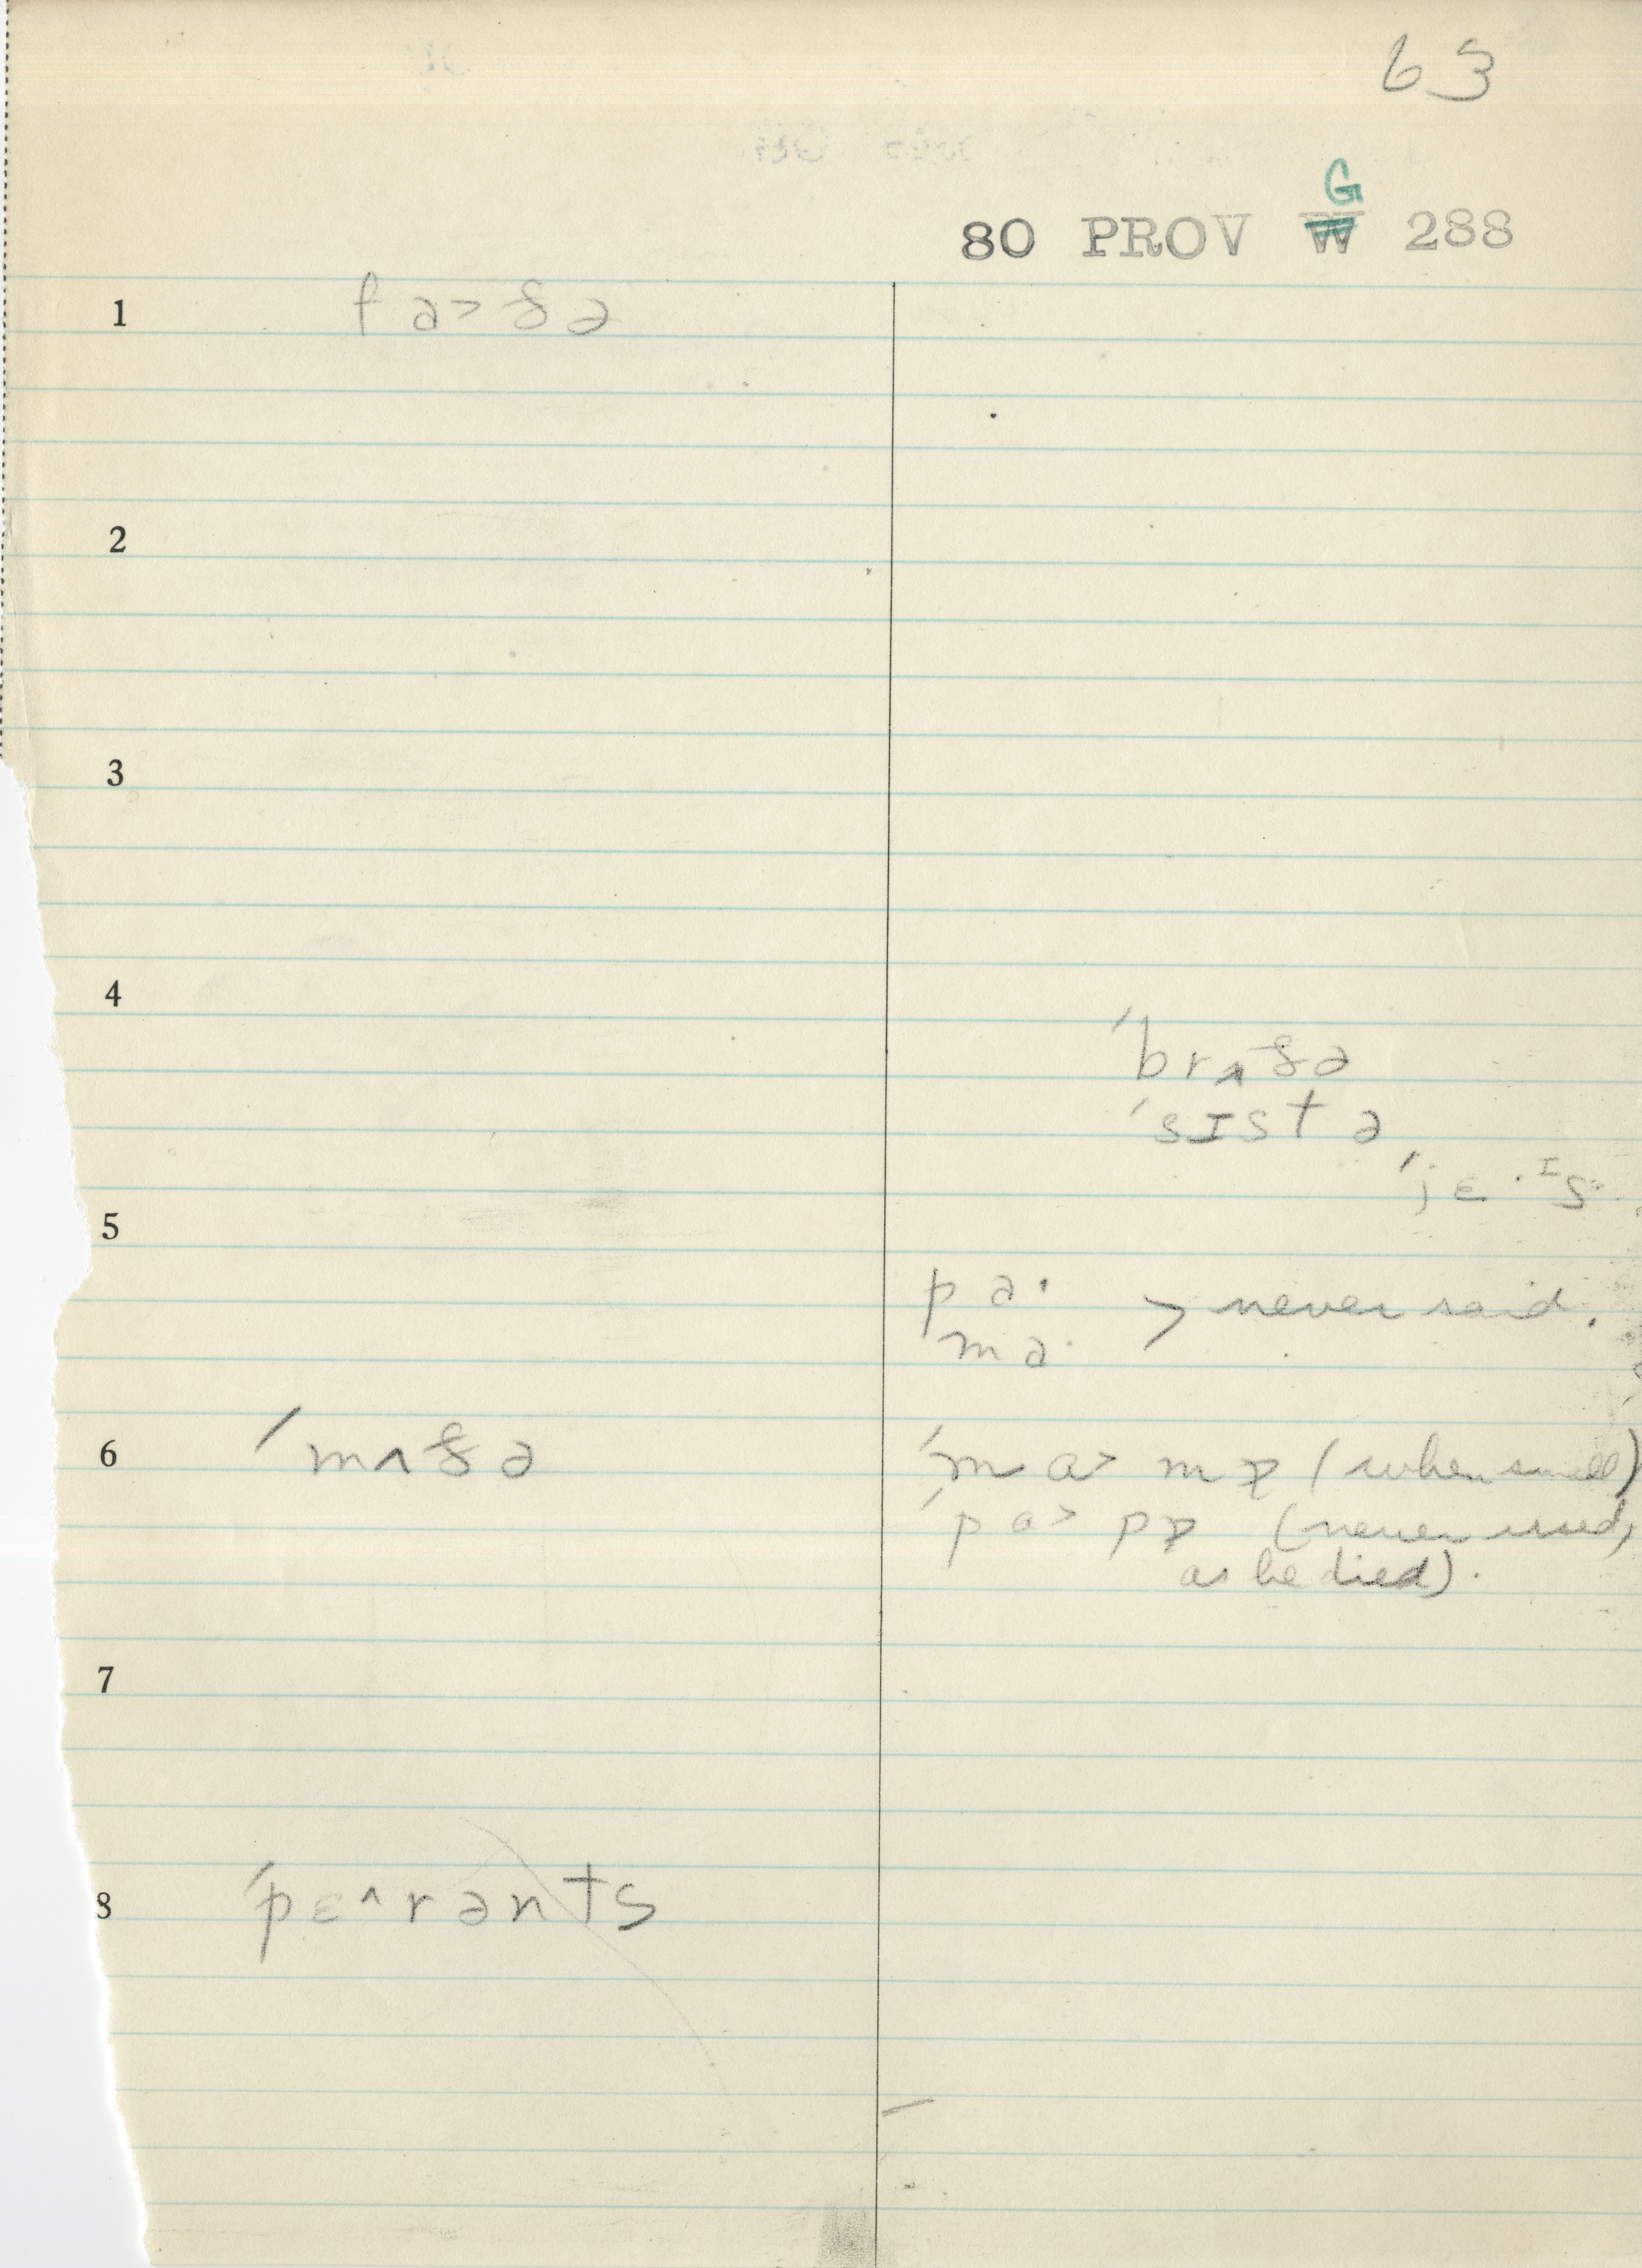 63
G
80 PROV W 288
1 fa˃ðə
2
3
4
ˈbrʌðə
ˈsɪstə
ˈjɛ·ɪs
5
pa·
ma· > never said.
6 ˈmʌðə ˈma˃mɒ (when small)
ˈpa˃pɒ (never used,
as he died).
7
8 ˈpɛ˄rənts